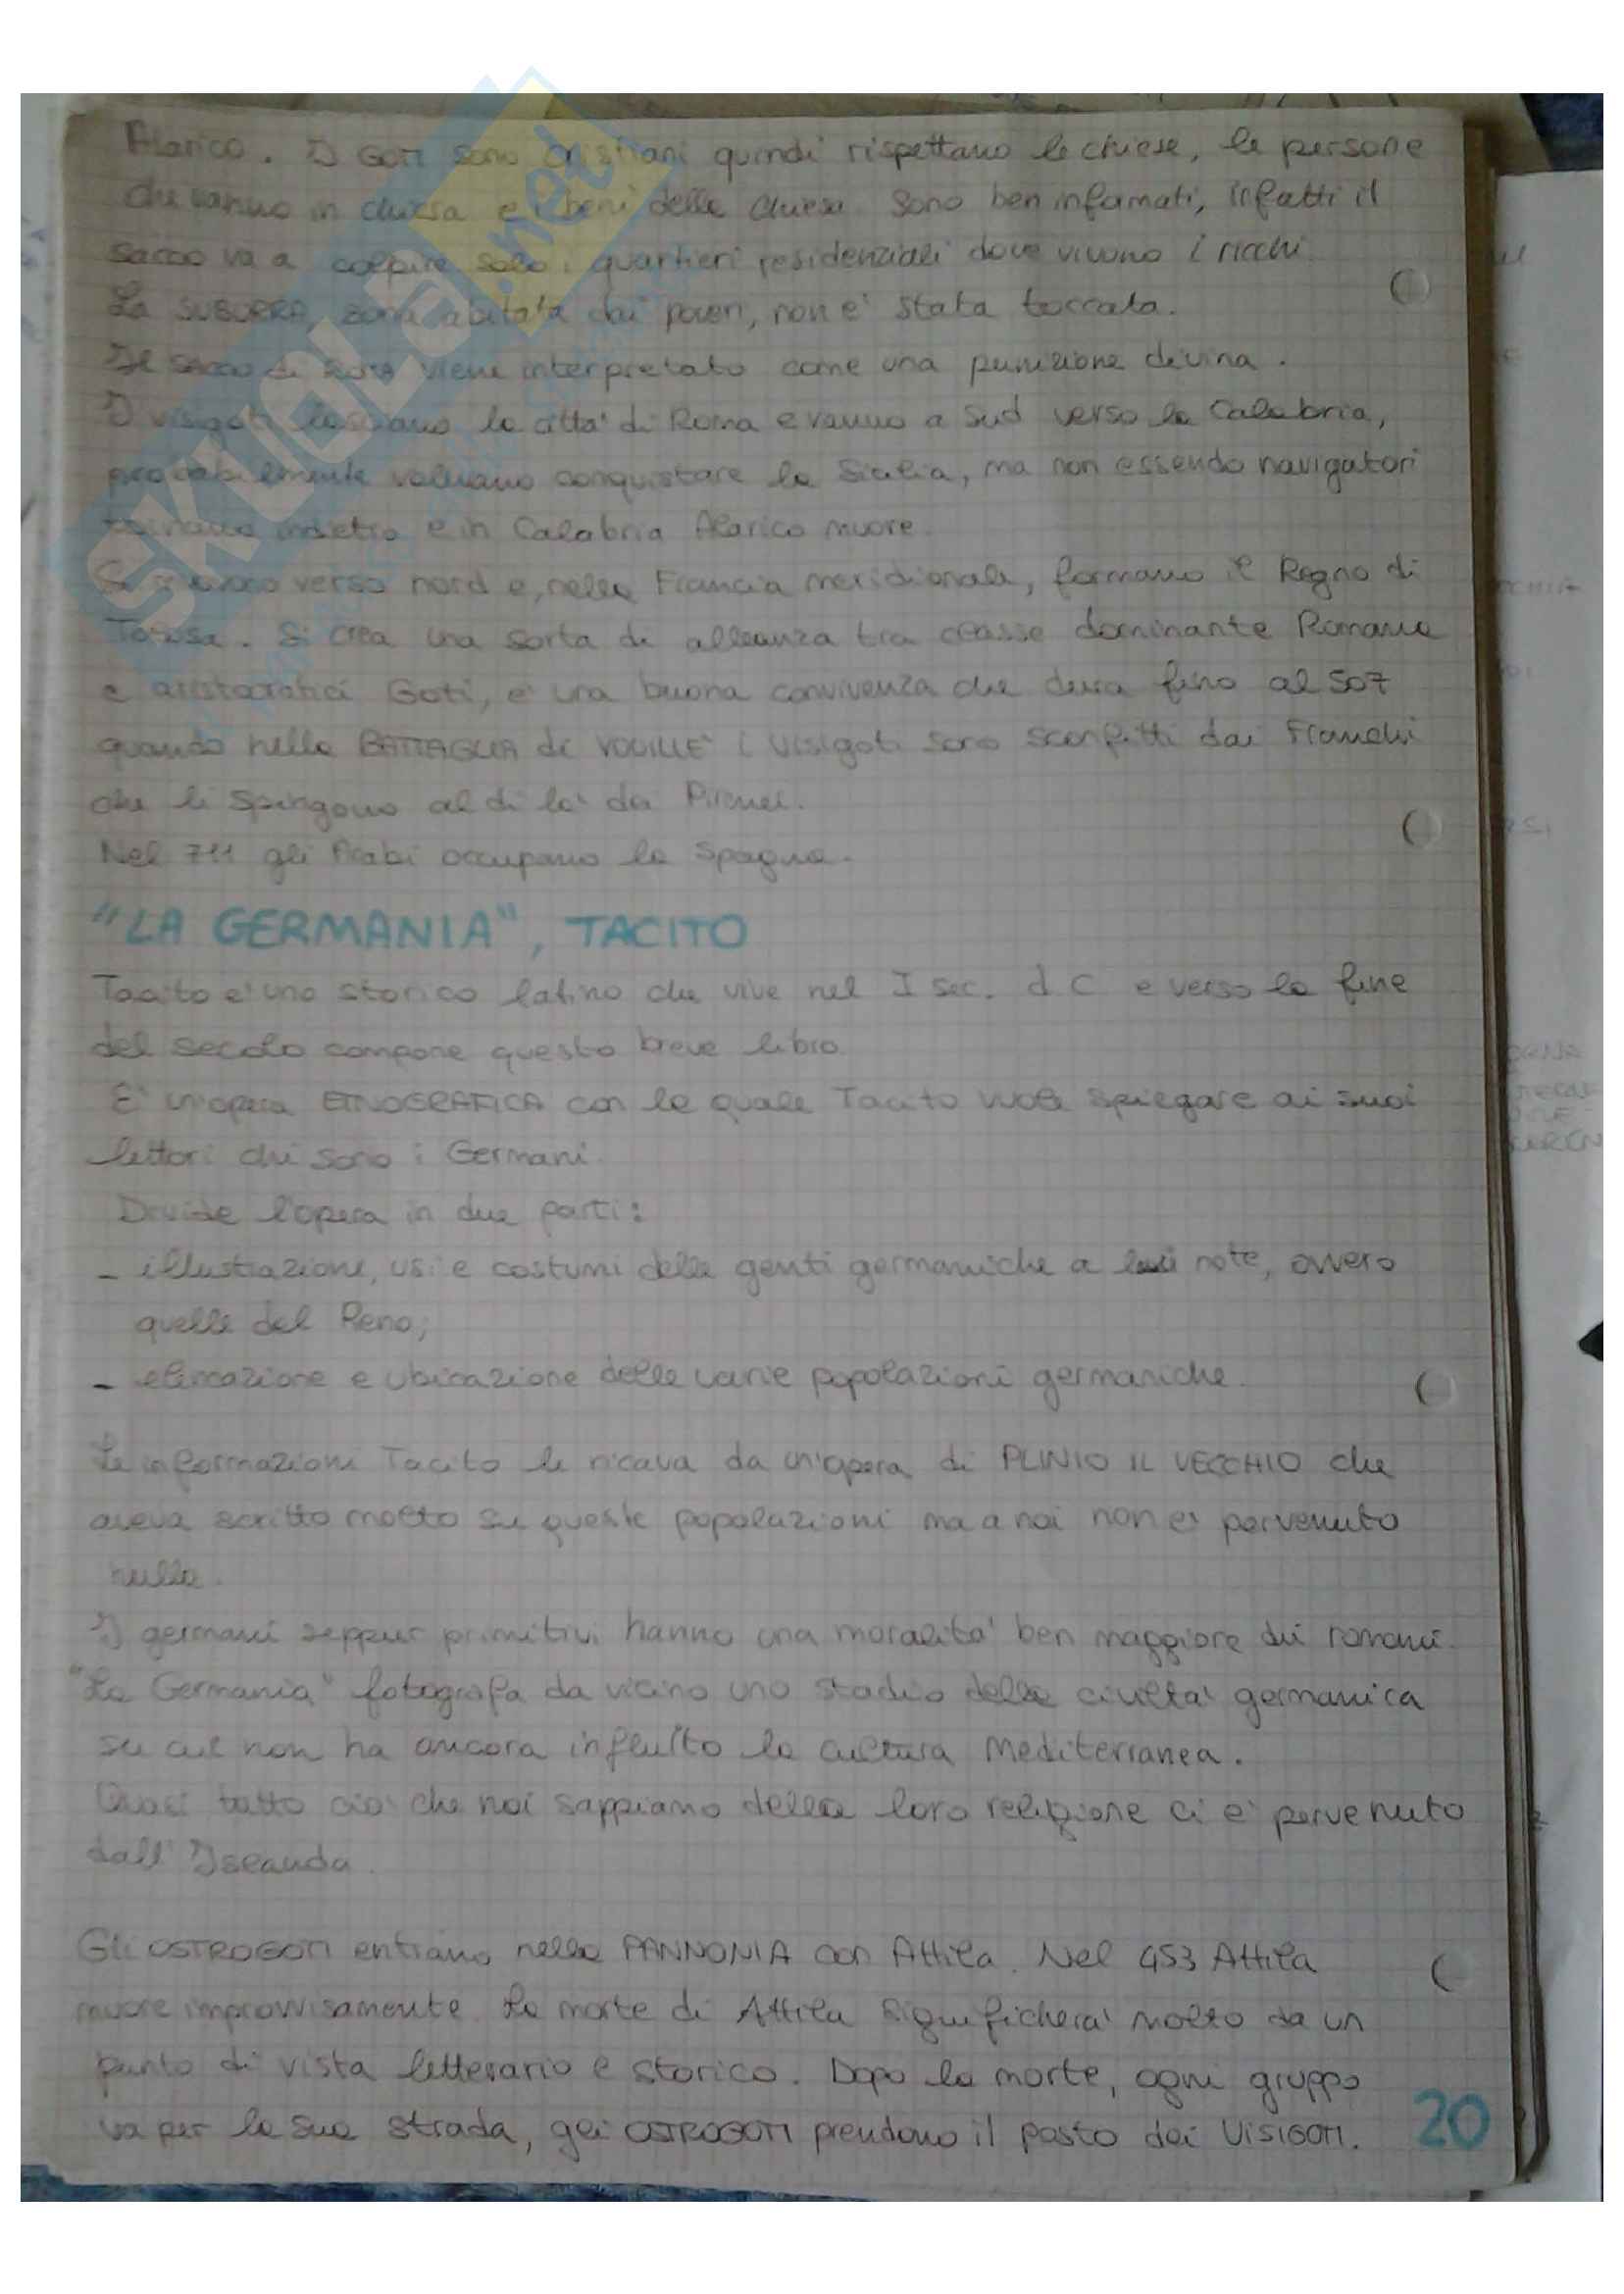 Alarico. I GOTI sono cristiani quindi rispettano le chiese, le persone
che vanno in chiesa e i beni delle chiese. Sono ben informati, infatti il
sacco va a colpire solo i quartieri residenziali dove vivono i ricchi.
La SUBURRA, zona abitata dai poveri, non e' stata toccata.
Il SACCO di ROMA viene interpretato come una punizione divina.
I visigoti lasciano la citta' di Roma e vanno a Sud verso la Calabria,
probabilmente volevano conquistare la Sicilia, ma non essendo navigatori
tornano indietro e in Calabria Alarico muore.
Si muovono verso nord e, nella Francia meridionale, formano il Regno di
Tolosa. Si crea una sorta di alleanza tra classe dominante Romana
e aristocratici Goti, e' una buona convivenza che dura fino al 507
quando nella BATTAGLIA di VOUILLE' i Visigoti sono sconfitti dai Franchi
che li spingono al di la' dei Pirenei.
Nel 711 gli Arabi occupano la Spagna.
"LA GERMANIA", TACITO
Tacito e' uno storico latino che vive nel I sec. d.C e verso la fine
del secolo compone questo breve libro.
E' un'opera ETNOGRAFICA con la quale Tacito vuole spiegare ai suoi
lettori chi sono i Germani.
Divide l'opera in due parti:
- illustrazione, usi e costumi delle genti germaniche a lui note, ovvero
quelle del Reno;
- elencazione e ubicazione delle varie popolazioni germaniche.
Le informazioni Tacito le ricava da un'opera di PLINIO IL VECCHIO che
aveva scritto molto su queste popolazioni ma a noi non e' pervenuto
nulla.
I germani seppur primitivi hanno una moralita' ben maggiore dei romani.
"La Germania" fotografa da vicino uno stadio della civilta' germanica
su cui non ha ancora influito la cultura Mediterranea.
Quasi tutto cio' che noi sappiamo della loro religione ci e' pervenuto
dall'Islanda.
Gli OSTROGOTI entrano nella PANNONIA con Attila. Nel 453 Attila
muore improvvisamente. La morte di Attila significhera' molto da un
punto di vista letterario e storico. Dopo la morte, ogni gruppo
va per la sua strada, gli OSTROGOTI prendono il posto dei VISIGOTI.
20
SKUOLA.net